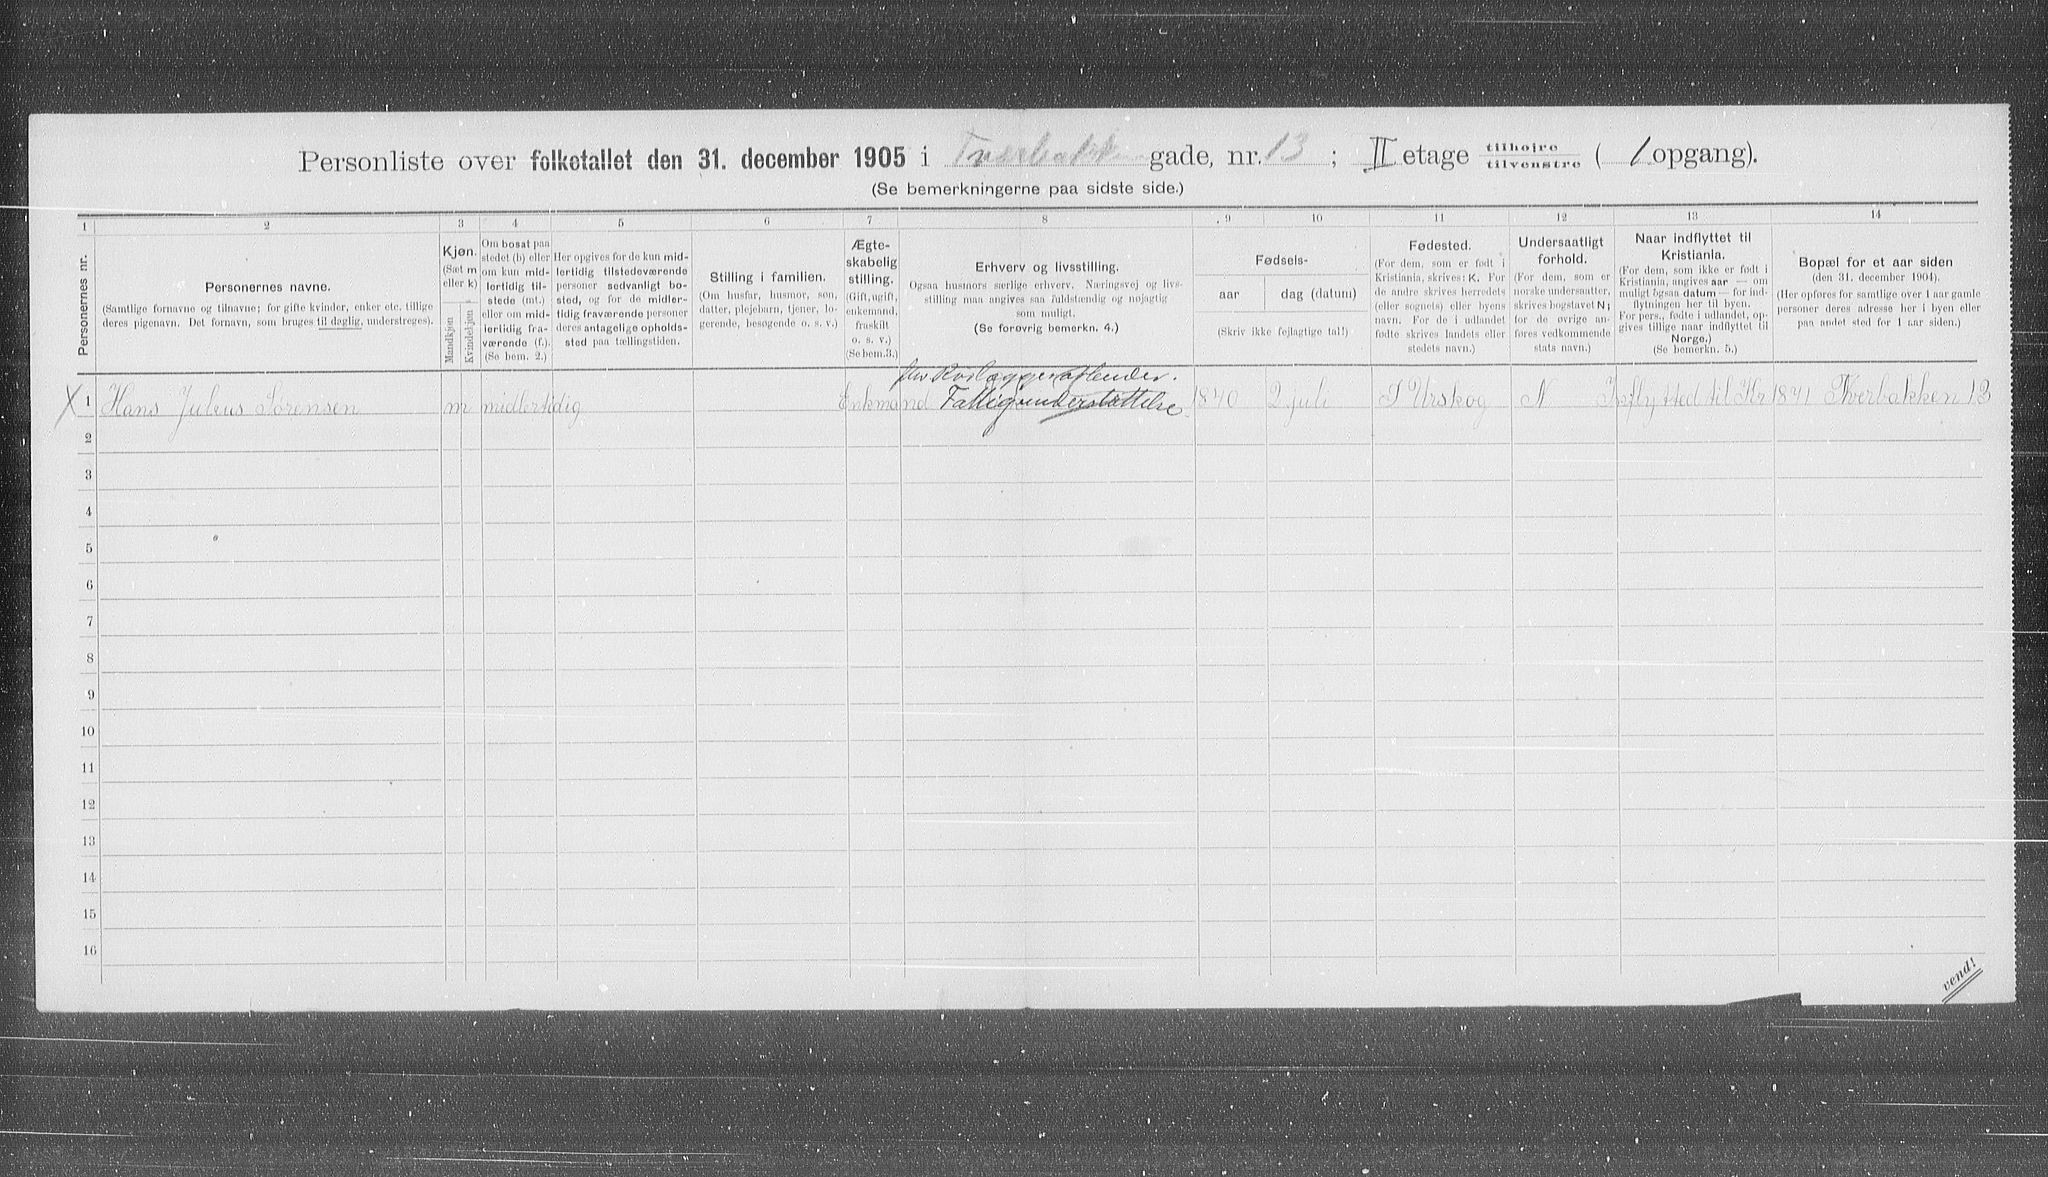 Personliste over folketallet den 31. december 1905 i Tverbakk gade, nr. 13 ; II etage tilhøire / tilvenstre ( 1 opgang).
(Se bemerkningerne paa sidste side.)
1 2 3 4 5 6 7 8 9 10 11 12 13 14
Personernes nr.
Personernes navne.
(Samtlige fornavne og tilnavne; for gifte kvinder, enker etc. tillige
deres pigenavn. Det fornavn, som bruges til daglig, understreges).
Kjøn.
(Sæt m
eller k)
Mandkjøn
Kvindekjøn
Om bosat paa
stedet (b) eller
om kun mid-
lertidig til-
stede (mt.)
eller om mid-
lertidig fra-
værende (f.).
(Se bem. 2.)
Her opgives for de kun mid-
lertidig tilstedeværende
personer sedvanligt bo-
sted, og for de midler-
tidig fraværende personer
deres antagelige opholds-
sted paa tællingstiden.
Stilling i familien.
(Om husfar, husmor, søn,
datter, plejebarn, tjener, lo-
gerende, besøgende o. s. v.)
Ægte-
skabelig
stilling.
(Gift, ugift,
enkemand,
fraskilt
o. s. v.)
(Se bem.3.)
Erhverv og livsstilling.
Ogsaa husmors særlige erhverv. Næringsvej og livs-
stilling maa angives saa fuldstændig og nøjagtig
som muligt.
(Se forøvrig bemerkn. 4.)
Fødsels-
aar
dag (datum)
(Skriv ikke fejlagtige tal!)
Fødested.
(For dem, som er født i
Kristiania, skrives: K. For
de andre skrives herredets
(eller sognets) eller byens
navn. For de i udlandet
fødte skrives landets eller
stedets navn.)
Undersaatligt
forhold.
(For dem, som er
norske undersaatter,
skrives bogstavet N;
for de øvrige an-
føres vedkommende
stats navn.)
Naar indflyttet til
Kristiania.
(For dem, som ikke er født i
Kristiania, angives aar — om
muligt ogsaa datum — for ind-
flytningen her til byen.
For pers., fødte i udlandet, op-
gives tillige naar indflyttet til
Norge.)
(Se bemerkn. 5.)
Bopæl for et aar siden
(den 31. december 1904).
(Her opføres for samtlige over 1 aar gamle
personer deres adresse her i byen eller
paa andet sted for 1 aar siden.)
X 1 Hans Julius Sørensen m midlertidig Enkmand Fattigunderstøttelse 1840 2 juli I Urskog N Inflytted til Kr 1841 Tverbakken 13
2
3
4
5
6
7
8
9
10
11
12
13
14
15
16
vend!